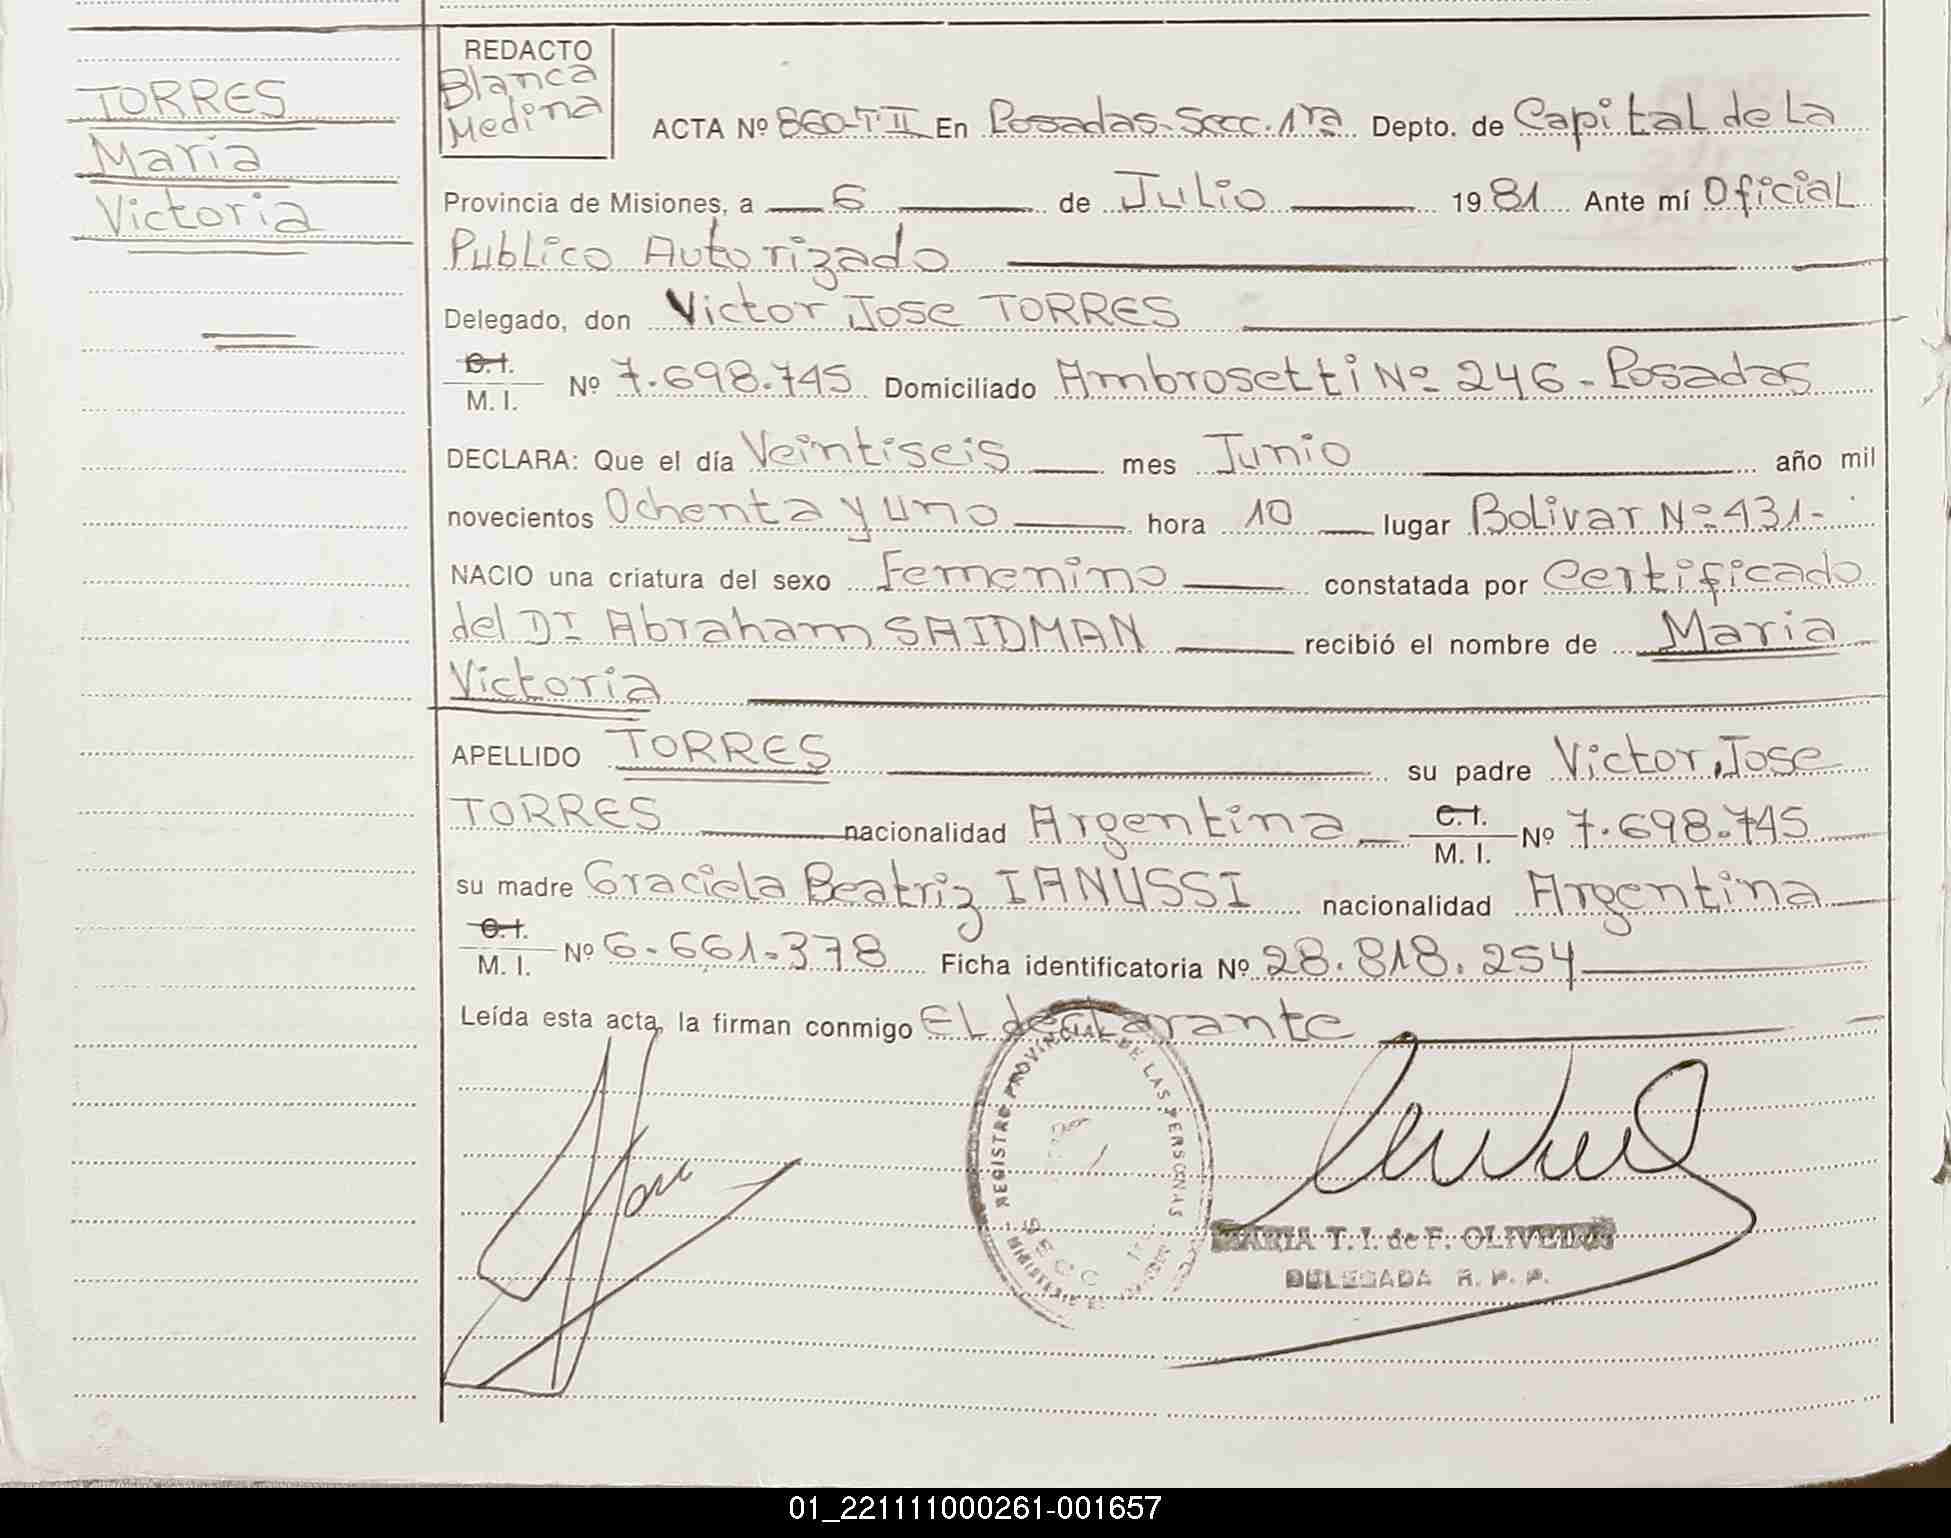 TORRES
Maria
Victoria
REDACTO
Blanca
Medina
ACTA Nº 860-TII En Posadas-Secc.1ra Depto. de Capital de La
Provincia de Misiones, a 6 de Julio 1981 Ante mí Oficial
Publico Autorizado
Delegado, don Victor Jose TORRES
C.I.
M. I. Nº 7.698.745 Domiciliado Ambrosetti Nº 246 - Posadas
DECLARA: Que el día Veintiseis mes Junio año mil
novecientos Ochenta y uno hora 10 lugar Bolivar Nº 431-
NACIO una criatura del sexo Femenino constatada por Certificado
del Dr Abraham SAIDMAN recibió el nombre de Maria
Victoria
APELLIDO TORRES su padre Victor Jose
TORRES nacionalidad Argentina C.I. M. I. Nº 7.698.745
su madre Graciela Beatriz IANUSSI nacionalidad Argentina
C.I.
M. I. Nº 6.661.378 Ficha identificatoria Nº 28.818.254
Leída esta acta, la firman conmigo EL declarante
REGISTRO PROVINCIAL DE LAS PERSONAS
MARIA T. I. de F. OLIVEIRA
DELEGADA R. P. P.
01_221111000261-001657